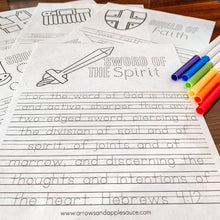 SHIELD OF
Faith
SWORD OF
THE Spirit
For the word of God is living
and active, sharper than any
two-edged sword, piercing to
the division of soul and of
spirit, of joints and of
marrow, and discerning the
thoughts and intentions of
the heart. Hebrews 4:12
www.arrowsandapplesauce.com